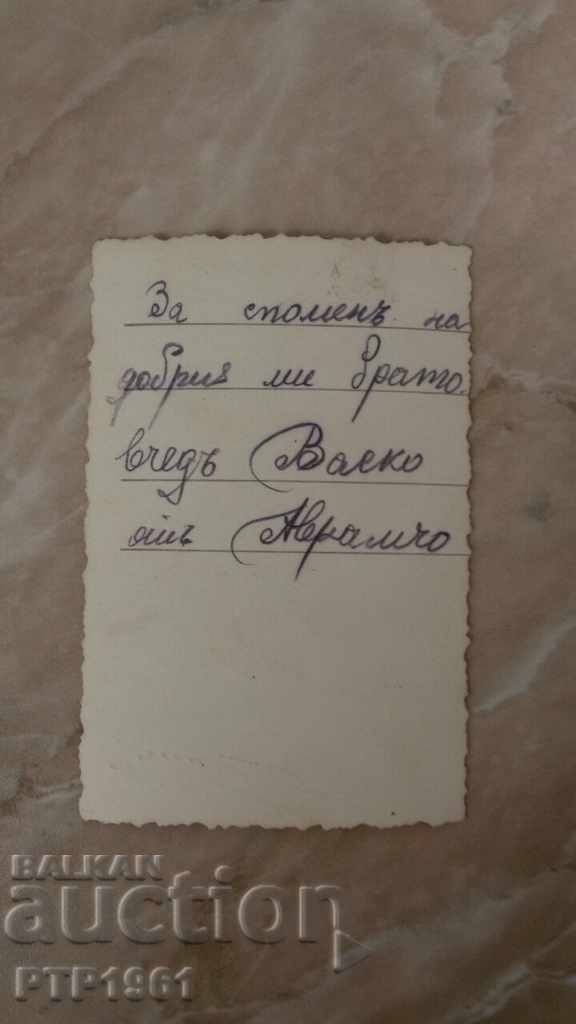 За споменъ на
добрия ми брато
вчедъ Васко
отъ Аврамчо
BALKAN
auction
PTP1961